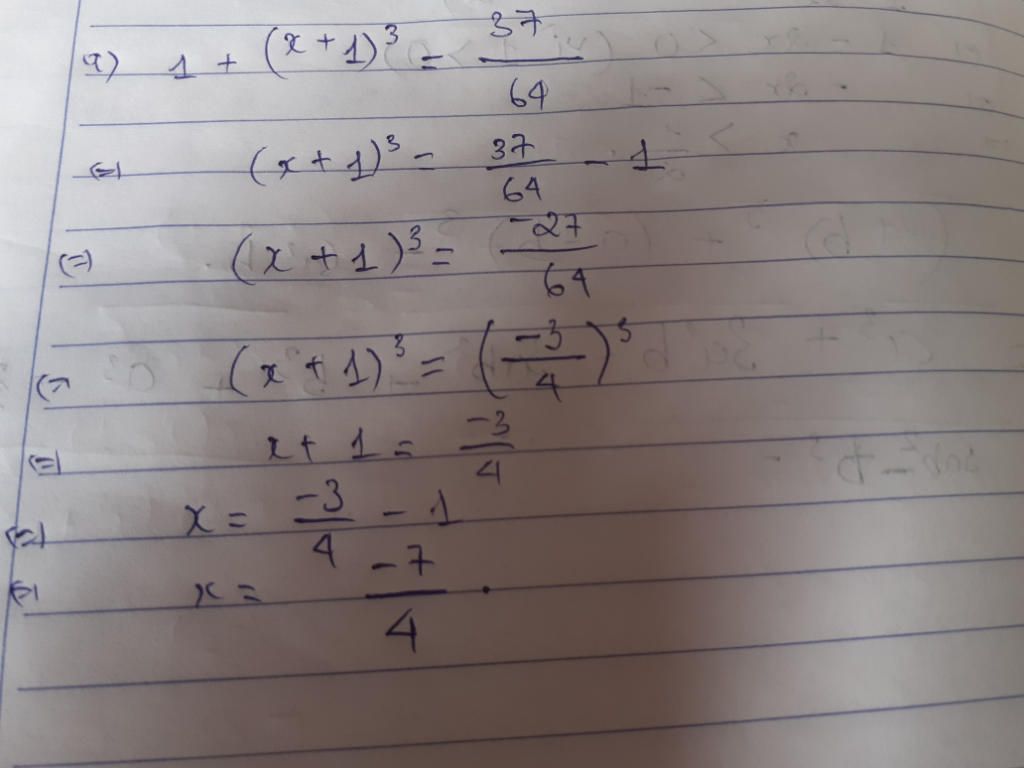 a) 1 + (x + 1)³ = 37/64
(=) (x + 1)³ = 37/64 - 1
(=) (x + 1)³ = -27/64
(= (x + 1)³ = (-3/4)³
(=) x + 1 = -3/4
(=) x = -3/4 - 1
(=) x = -7/4 .